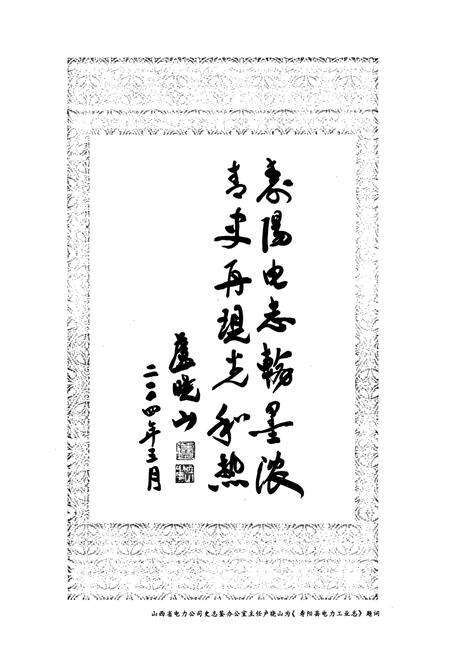 寿陽电志翰墨浓
青史再現光和热
盧晓山
二〇〇四年三月
山西省电力公司史志鉴办公室主任卢晓山为《寿阳县电力工业志》题词